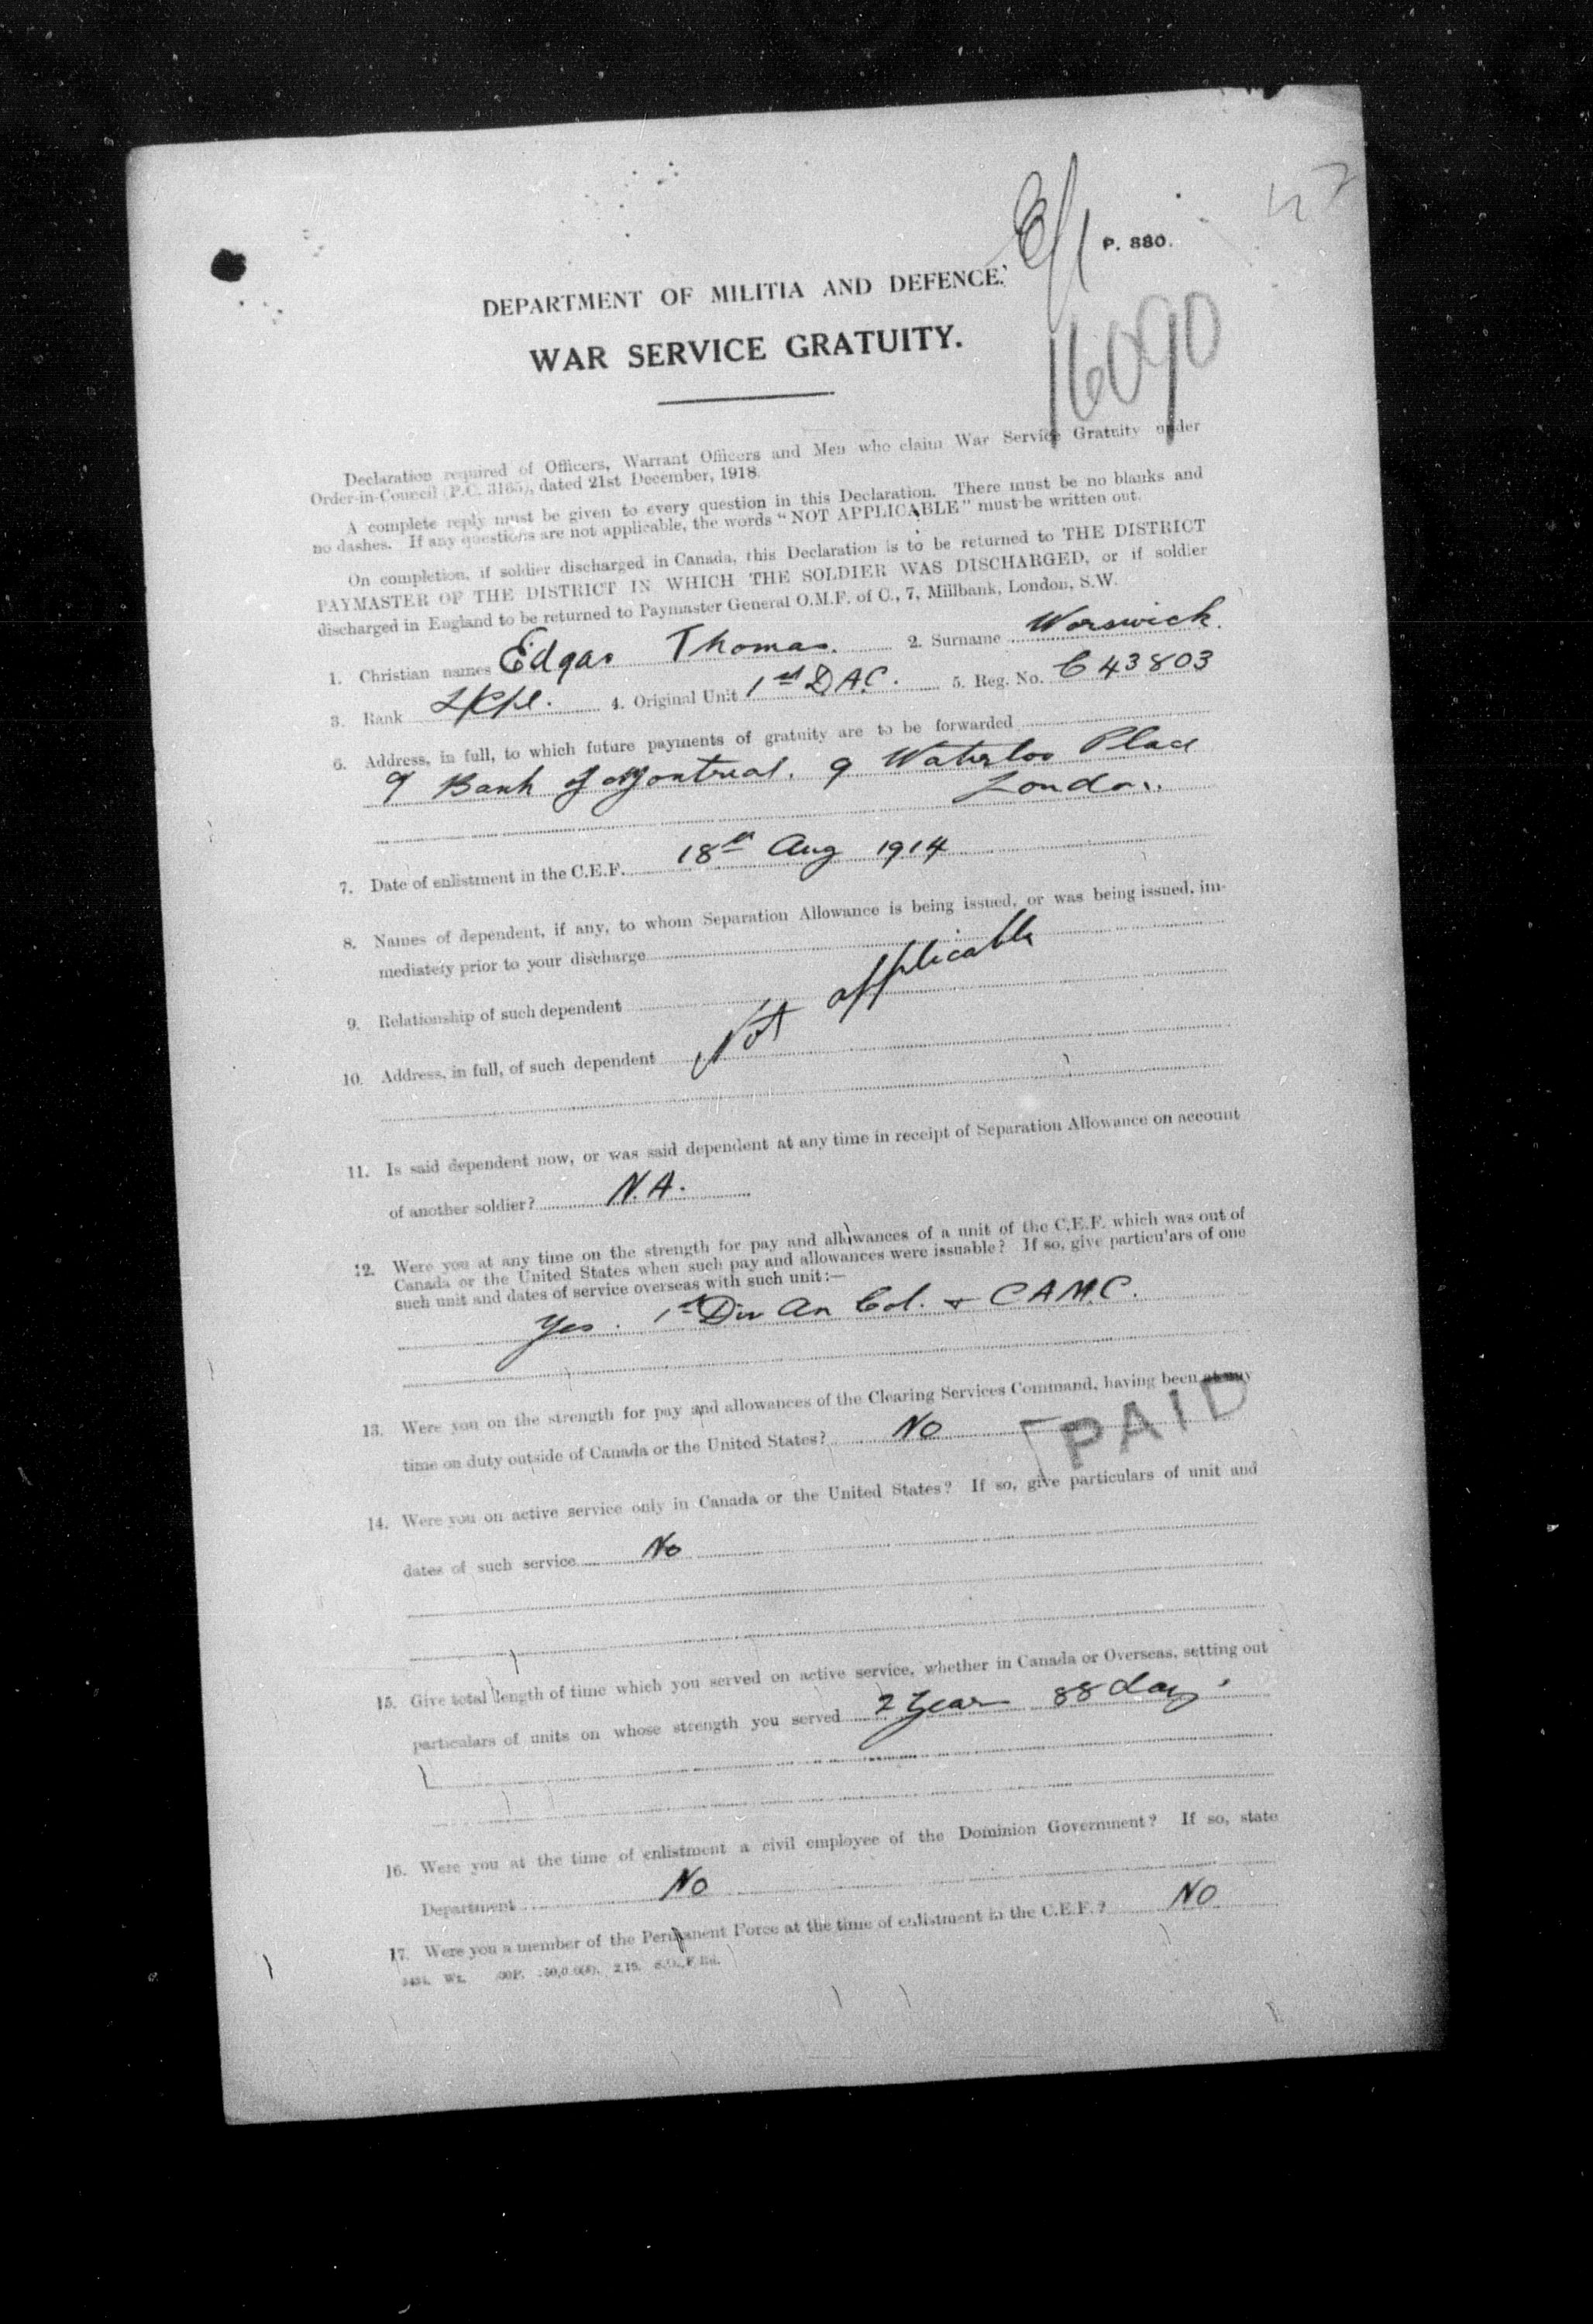 P. 880.
DEPARTMENT OF MILITIA AND DEFENCE.
WAR SERVICE GRATUITY.
16090
Declaration required of Officers, Warrant Officers and Men who claim War Service Gratuity under
Order-in-Council (P.C. 3165), dated 21st December, 1918.
A complete reply must be given to every question in this Declaration. There must be no blanks and
no dashes. If any questions are not applicable, the words "NOT APPLICABLE" must be written out.
On completion, if soldier discharged in Canada, this Declaration is to be returned to THE DISTRICT
PAYMASTER OF THE DISTRICT IN WHICH THE SOLDIER WAS DISCHARGED, or if soldier
discharged in England to be returned to Paymaster General O.M.F. of C., 7, Millbank, London, S.W.
1. Christian names Edgar Thomas. 2. Surname Worswick.
3. Rank L/Cpl. 4. Original Unit 1st D.A.C. 5. Reg. No. C 43803
6. Address, in full, to which future payments of gratuity are to be forwarded
Bank of Montreal. 9 Waterloo Place
London.
7. Date of enlistment in the C.E.F. 18th Aug 1914
8. Names of dependent, if any, to whom Separation Allowance is being issued, or was being issued, im-
mediately prior to your discharge
9. Relationship of such dependent Not applicable
10. Address, in full, of such dependent
11. Is said dependent now, or was said dependent at any time in receipt of Separation Allowance on account
of another soldier? N.A.
12. Were you at any time on the strength for pay and allowances of a unit of the C.E.F. which was out of
Canada or the United States when such pay and allowances were issuable? If so, give particulars of one
such unit and dates of service overseas with such unit:—
Yes. 1st Div Am Col. + C A M.C.
13. Were you on the strength for pay and allowances of the Clearing Services Command, having been at any
time on duty outside of Canada or the United States? No
PAID
14. Were you on active service only in Canada or the United States? If so, give particulars of unit and
dates of such service No
15. Give total length of time which you served on active service, whether in Canada or Overseas, setting out
particulars of units on whose strength you served 2 Years 88 days.
16. Were you at the time of enlistment a civil employee of the Dominion Government? If so, state
Department No
17. Were you a member of the Permanent Force at the time of enlistment in the C.E.F.? NO